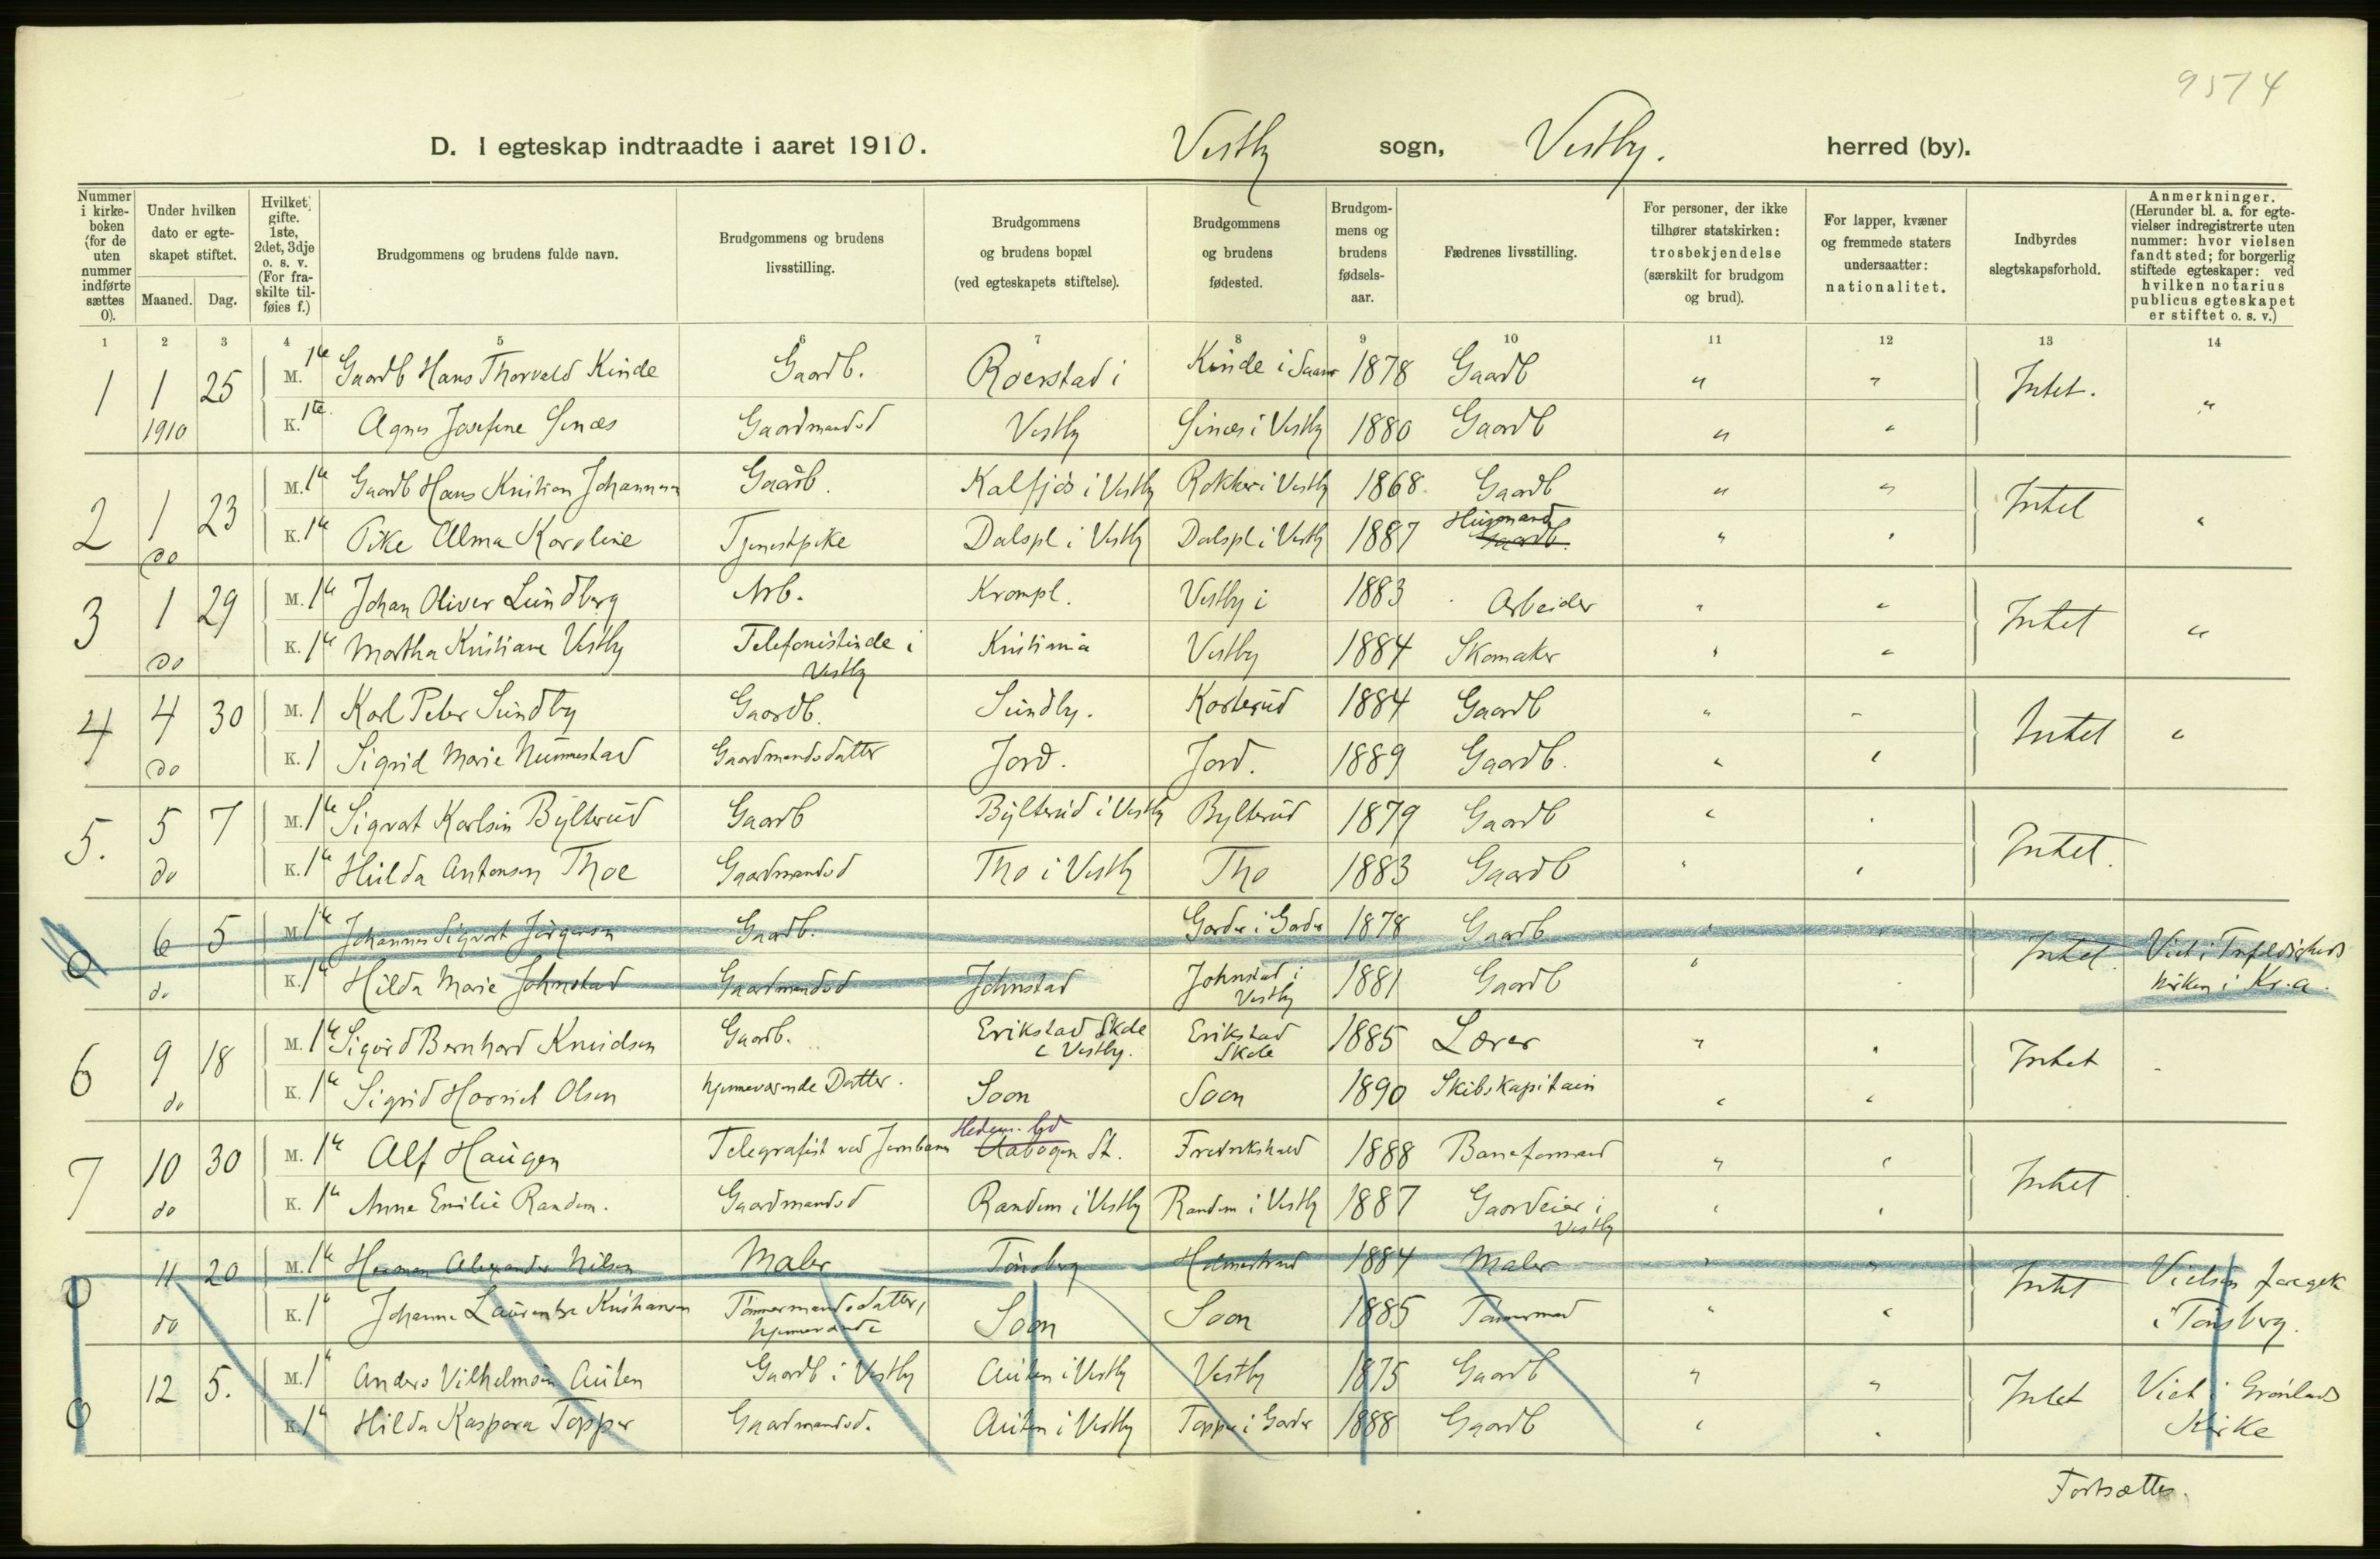 9574
D. I egteskap indtraadte i aaret 1910. Vestby sogn, Vestby. herred (by).
Nummer i kirke-boken (for de uten nummer indførte sættes 0).
Under hvilken dato er egte-skapet stiftet.
Maaned. Dag.
Hvilket gifte. 1ste, 2det, 3dje o. s. v. (For fra-skilte til-føies f.)
Brudgommens og brudens fulde navn.
Brudgommens og brudens livsstilling.
Brudgommens og brudens bopæl (ved egteskapets stiftelse).
Brudgommens og brudens fødested.
Brudgom-mens og brudens fødsels-aar.
Fædrenes livsstilling.
For personer, der ikke tilhører statskirken: trosbekjendelse (særskilt for brudgom og brud).
For lapper, kvæner og fremmede staters undersaatter: nationalitet.
Indbyrdes slegtskapsforhold.
Anmerkninger. (Herunder bl. a. for egte-vielser indregistrerte uten nummer: hvor vielsen fandt sted; for borgerlig stiftede egteskaper: ved hvilken notarius publicus egteskapet er stiftet o. s. v.)
1 2 3 4 5 6 7 8 9 10 11 12 13 14
1 1 25 M. 1te Gaardb Hans Thorvald Kinde Gaardb. Roerstad i Kinde i 1878 Gaardb " " Intet. "
1910 K. 1te Agnes Josefine Sinæs Gaardmandsd Vestby Sinæs i Vestby 1880 Gaardb " "
2 1 23 M. 1te Gaardb Hans Kristian Johannesen Gaardb. Kalfjøs i Vestby i Vestby 1868 Gaardb " " Intet "
do K. 1te Pike Alma Karoline Tjenestpike Dalspl i Vestby Dalspl i Vestby 1887 Husmand Gaardb. " "
3 1 29 M. 1te Johan Oliver Lundberg Arb. Krompl. Vestby i 1883 Arbeider " " Intet "
do K. 1te Martha Kristiane Vestby Telefonistinde i Vestby Kristiania Vestby 1884 Skomaker " "
4 4 30 M. 1 Karl Peter Sundby Gaardb. Sundby. Korterud 1884 Gaardb " " Intet "
do K. 1 Sigrid Marie Nunnestad Gaardmandsdatter Jord. Jord. 1889 Gaardb. " "
5. 5 7 M. 1te Sigvart Karlsen Bylterud Gaardb Bylterud i Vestby Bylterud 1879 Gaardb " " Intet.
do K. 1te Hulda Antonsen Thoe Gaardmandsd Tho i Vestby Tho 1883 Gaardb " "
0 6 5 M. 1te Johannes Sigvart Jørgensen Gaardb. Garder i Garder 1878 Gaardb " " Intet. Viet i Trefoldigheds
do K. 1te Hilda Marie Johnstad Gaardmandsd Johnstad Johnstad i Vestby 1881 Gaardb " kirken i Kr.a.
6 9 18 M. 1te Sigurd Bernhard Knudsen Gaardb. Erikstad Skole i Vestby. Erikstad Skole 1885 Lærer " " Intet
do K. 1te Sigrid Harriet Olsen hjemmeværende Datter. Soon Soon 1890 Skibskapitain " "
7 10 30 M. 1te Alf Haugen Telegrafist ved Jernbanen Hedem. Aabogen St. Fredrikshald 1888 Baneformand " " Intet
do K. 1te Anne Emilie Randem. Gaardmandsd Randem i Vestby Randem i Vestby 1887 Gaardeier i Vestby " "
0 11 20 M. 1te Herman Alexander Nilsen Maler Tønsberg Holmestrand 1884 Maler " " Intet Vielsen foregik
do K. 1te Johanne Laurentze Kristiansen Tømmermandsdatter, hjemmeværende Soon Soon 1885 Tømmermand " " i Tønsberg.
0 12 5. M. 1te Anders Vilhelmsen Auten Gaardb i Vestby Auten i Vestby Vestby 1875 Gaardb " " Intet Viet i Grønlands
K. 1te Hilda Kaspara Topper Gaardmandsd. Auten i Vestby Topper i Garder 1888 Gaardb " " Kirke
Fortsættes.